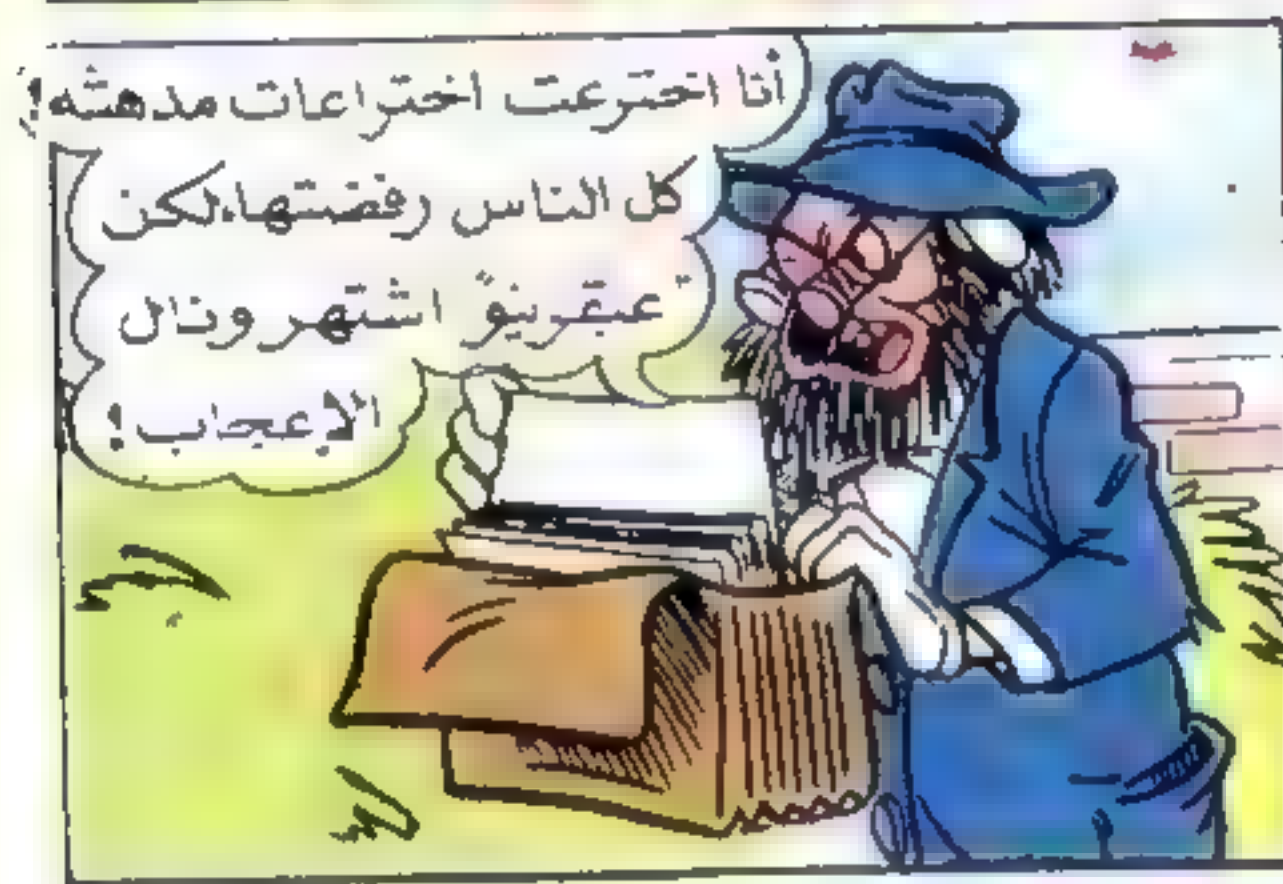 أنا اخترعت اختراعات مدهشه!
كل الناس رفضتها،لكن
"عبقرينو" اشتهر ونال
الإعجاب!